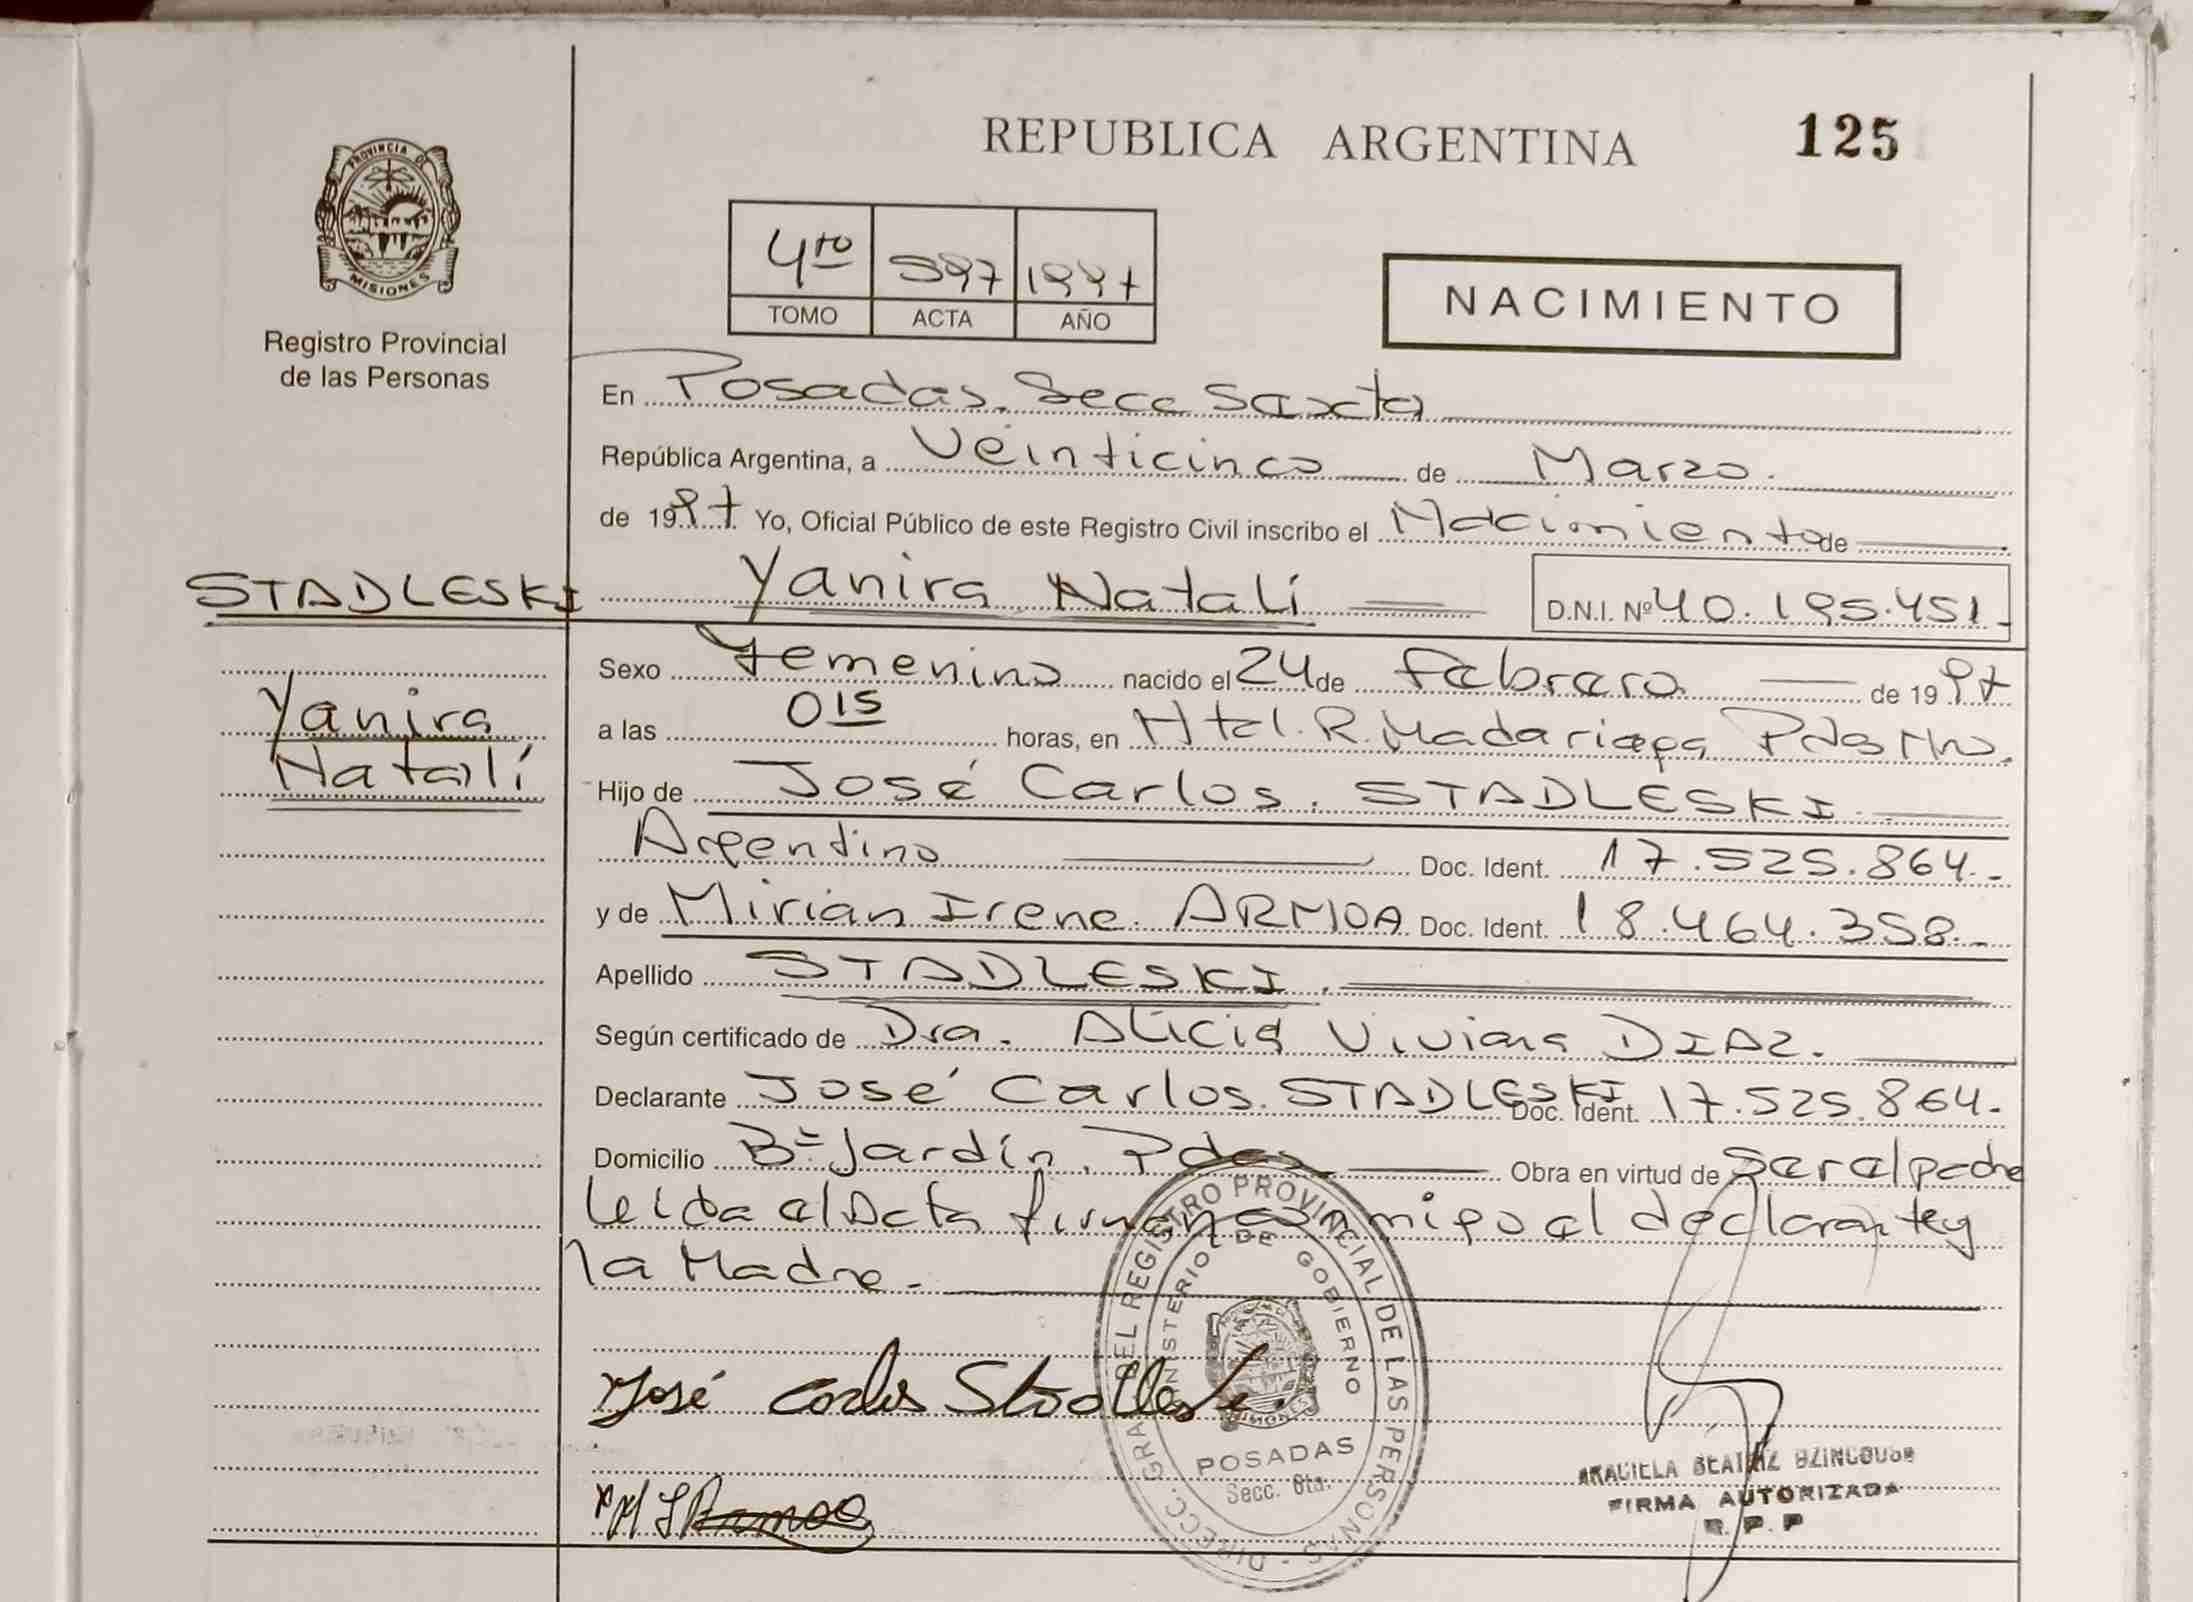 REPUBLICA ARGENTINA
125
PROVINCIA DE
MISIONES
Registro Provincial
de las Personas
4to 597 1997
TOMO ACTA AÑO
NACIMIENTO
En Posadas. Secc Saxcta
República Argentina, a Veinticinco de Marzo.
de 1997 Yo, Oficial Público de este Registro Civil inscribo el Nacimiento de
STADLESKI
Yanira Natalí
D.N.I. Nº 40.195.451
Sexo Femenino nacido el 24 de Febrero de 1997
Yanira
Natalí
a las 015 horas, en Htal. R. Madariaga Pdas Mnes.
Hijo de José Carlos. STADLESKI
Argentino Doc. Ident. 17.525.864.-
y de Mirian Irene. ARMOA Doc. Ident. 18.464.358.-
Apellido STADLESKI.
Según certificado de Dra. Alicia Viviana DIAZ.
Declarante José Carlos. STADLESKI Doc. Ident. 17.525.864.-
Domicilio Bº Jardín. Pdas Obra en virtud de Ser el padre
Leida el Acta firman conmigo el declarante y
la Madre.-
José Carlos Stadleski
DIRECC. GRAL. DEL REGISTRO PROVINCIAL DE LAS PERSONAS -
MINISTERIO DE GOBIERNO
MISIONES
POSADAS
Secc. 6ta.
BEATRIZ
FIRMA AUTORIZADA
R. P. P